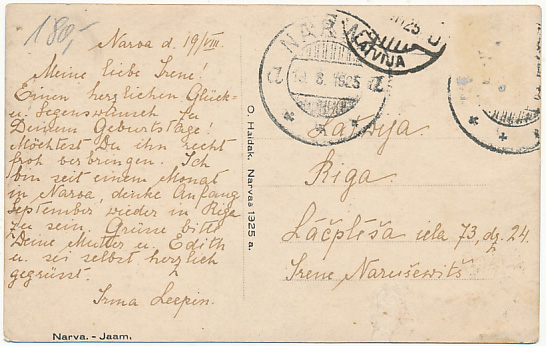 180,-
Narva d. 19/VIII.
Meine liebe Irene!
Einen herzlichen Glück-
u. Segenswunsch zu
Deinem Geburtstage!
Möchtest Du ihn recht
froh verbringen. Ich
bin seit einem Monat
in Narva, denke Anfang
September wieder in Riga
zu sein. Grüße bitte
Deine Mutter u. Edith
u. sei selbst herzlich
gegrüsst.
Irma Leepin.
Narva. - Jaam.
O. Haidak, Narvas 1925 a.
NARVA
8. 1925
LATVIJA
Latvija
Riga.
Lāčplēša iela 73, dz. 24.
Irene Naruševitš